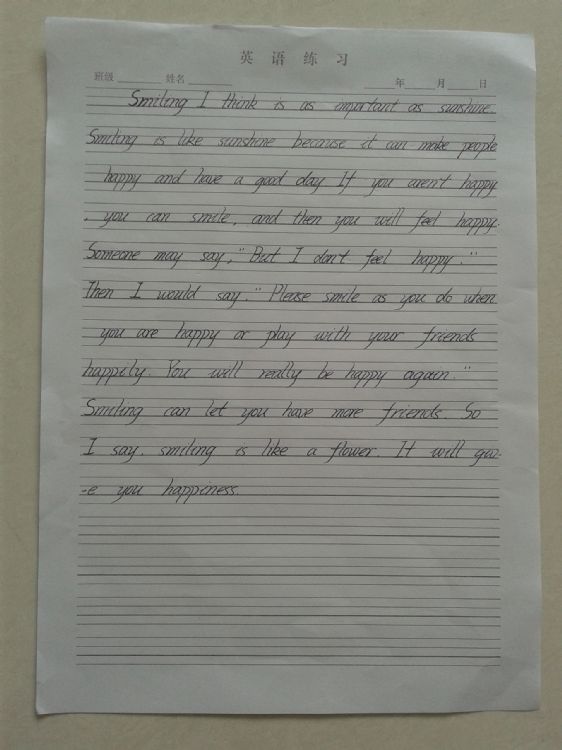 英语练习
班级 姓名 年 月 日
Smiling I think is as important as sunshine.
Smiling is like sunshine because it can make people
happy and have a good day. If you aren't happy
, you can smile, and then you will feel happy.
Someone may say, "But I don't feel happy."
Then I would say. "Please smile as you do when
you are happy or play with your friends
happily. You will really be happy again."
Smiling can let you have more friends. So
I say. smiling is like a flower. It will giv-
-e you happiness.